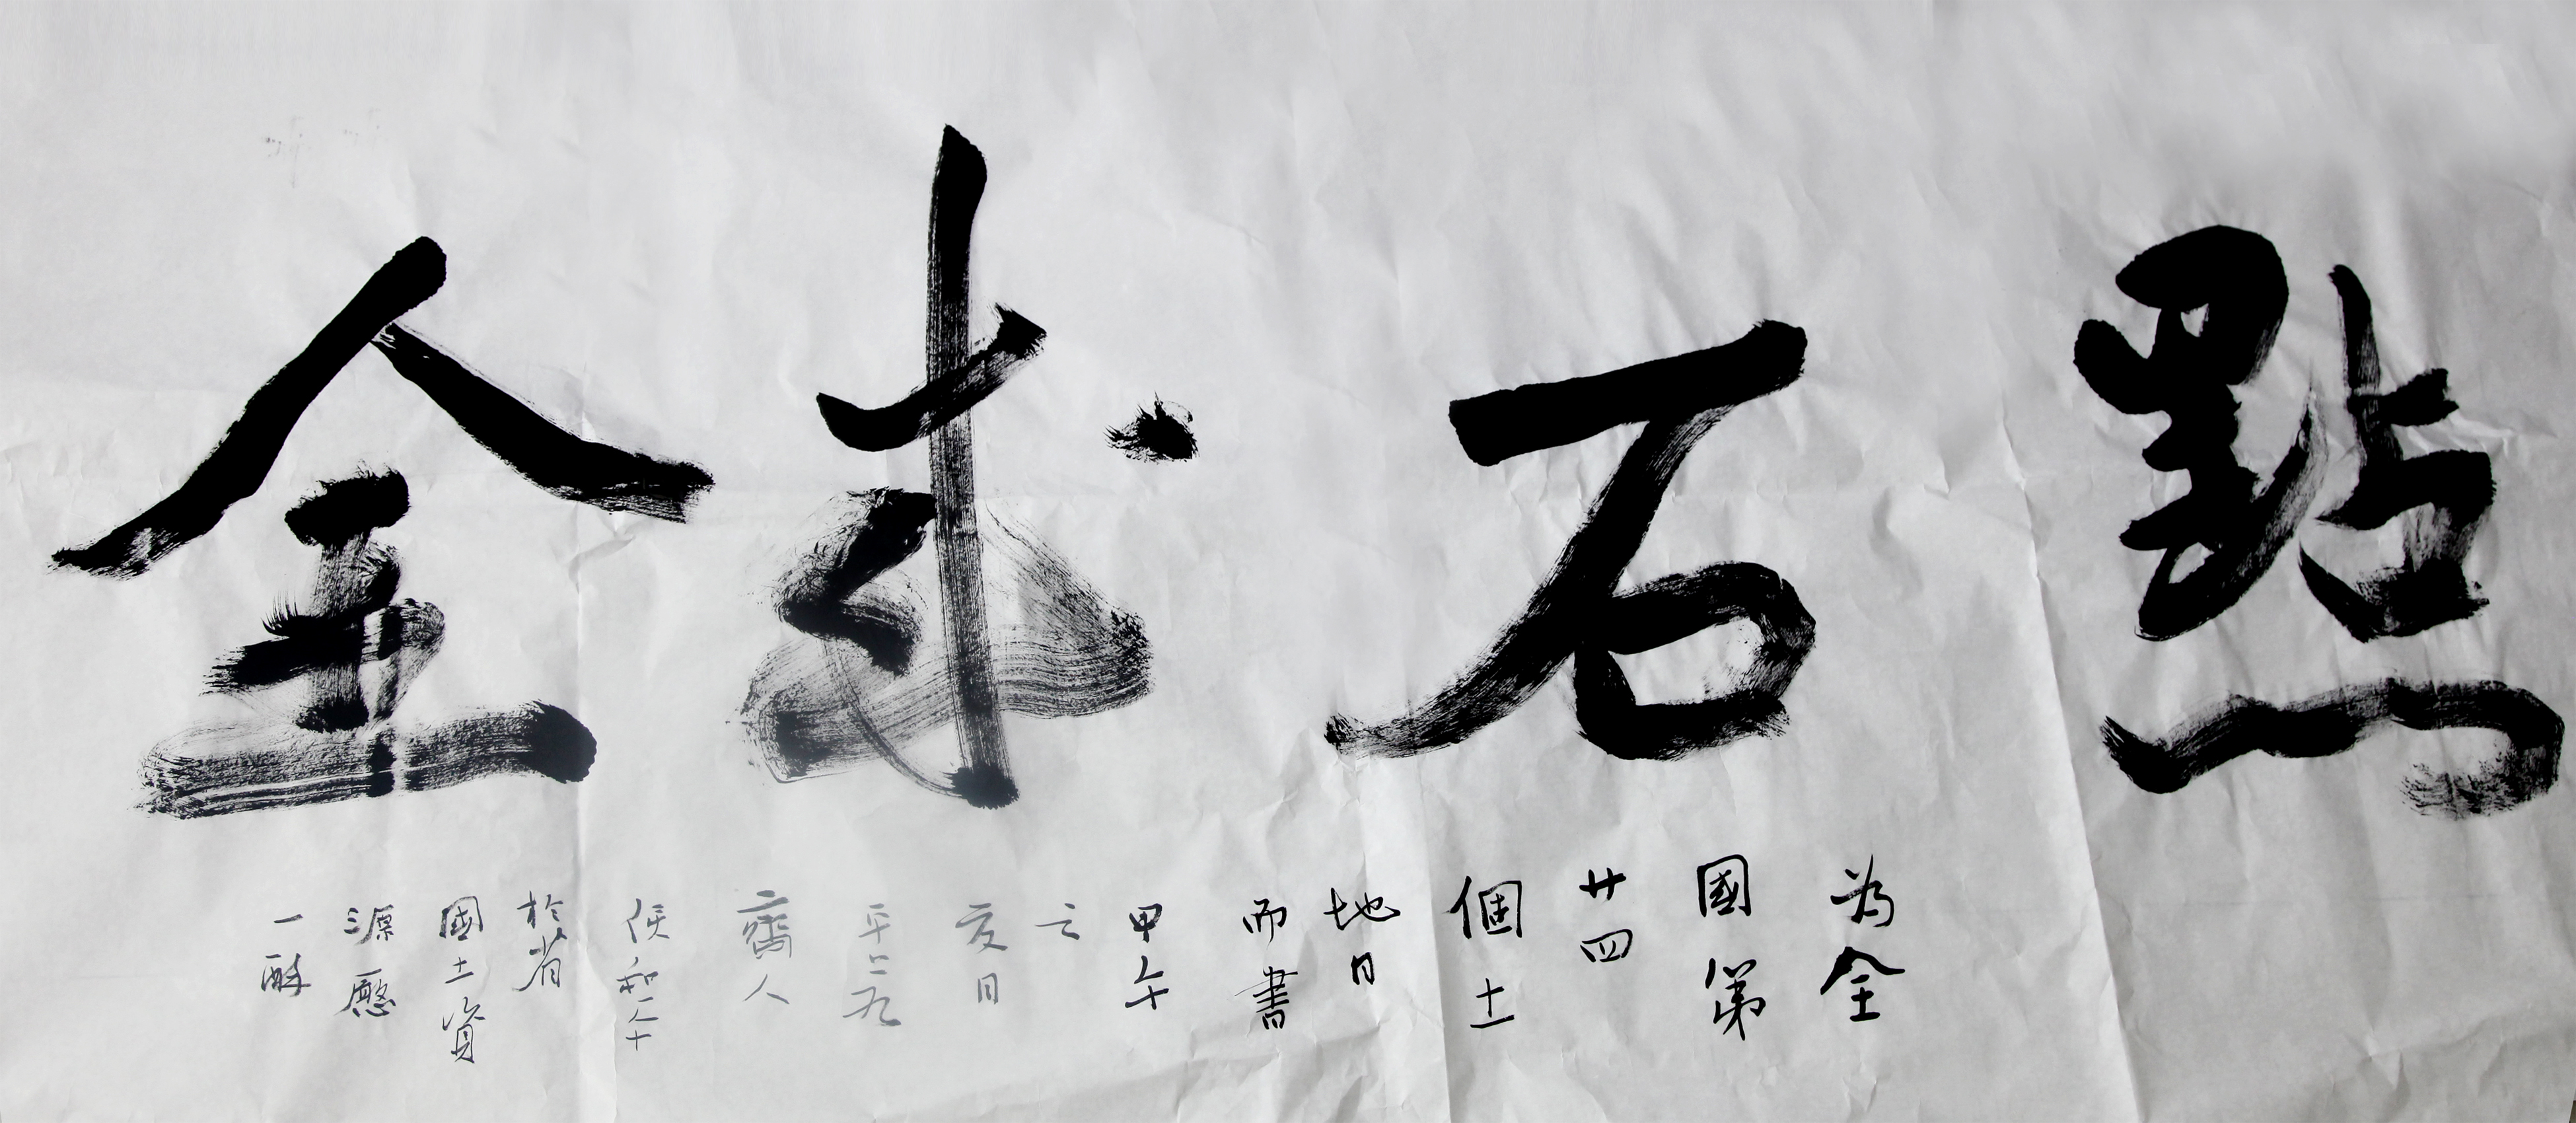 點石求金
為全
國第
廿四
個土
地日
而書
甲午
之
夏月
齋人
侯和平
於省
國土資
源廳
一